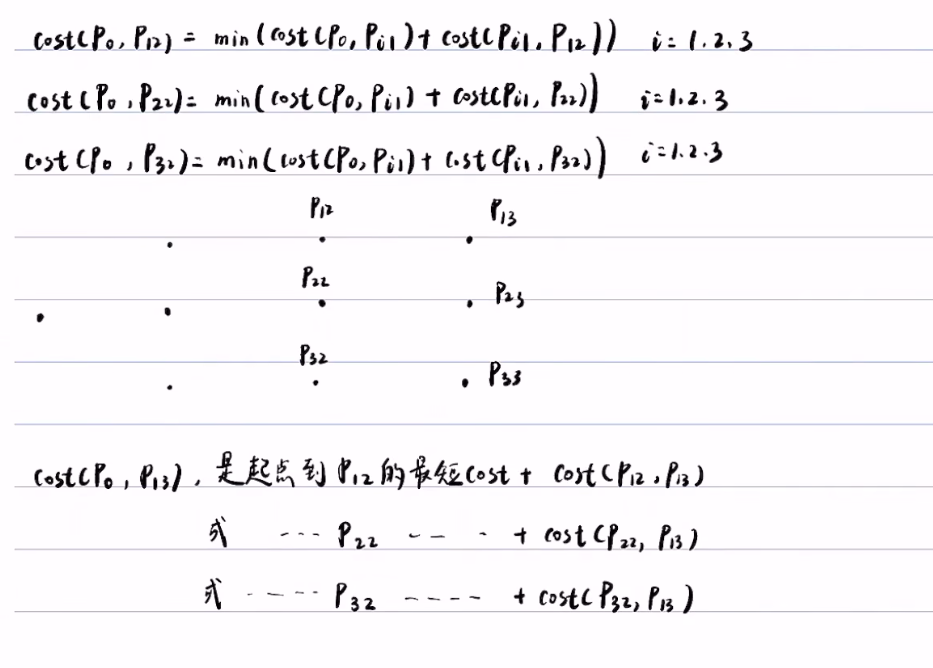 cost(P₀, P₁₂) = min(cost(P₀, Pᵢ₁) + cost(Pᵢ₁, P₁₂)) i = 1.2.3
cost(P₀, P₂₂) = min(cost(P₀, Pᵢ₁) + cost(Pᵢ₁, P₂₂)) i=1.2.3
cost(P₀, P₃₂) = min(cost(P₀, Pᵢ₁) + cost(Pᵢ₁, P₃₂)) i=1.2.3
P₁₂ P₁₃
P₂₂ P₂₃
P₃₂ P₃₃
cost(P₀, P₁₃), 是起点到P₁₂的最短cost + cost(P₁₂, P₁₃)
或 ... P₂₂ -- - + cost(P₂₂, P₁₃)
或 ----- P₃₂ ---- + cost(P₃₂, P₁₃)